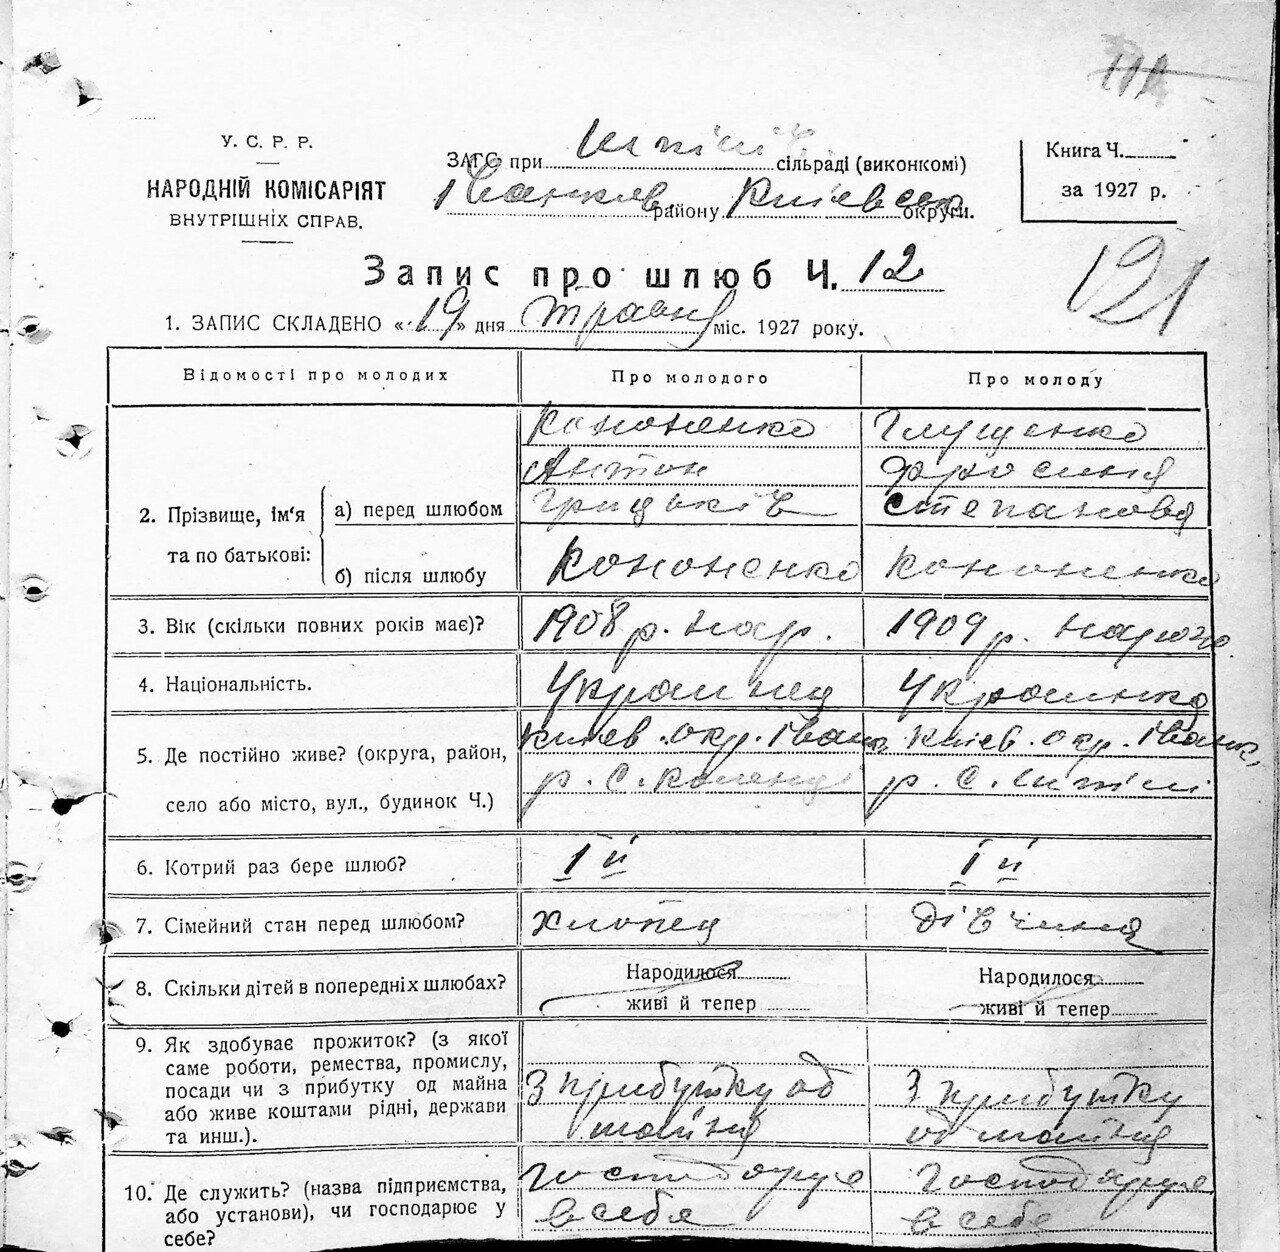 111
У. С. Р. Р.
НАРОДНІЙ КОМІСАРІЯТ
ВНУТРІШНІХ СПРАВ.
ЗАГС при сільраді (виконкомі)
Іванків району Київськ округи.
Книга Ч.
за 1927 р.
Запис про шлюб Ч. 12
121
1. ЗАПИС СКЛАДЕНО «19» дня травня міс. 1927 року.
Відомості про молодих
Про молодого
Про молоду
2. Прізвище, ім'я та по батькові:
а) перед шлюбом
Кононенко
Антон
Грицьків
Глущенко
Фросиня
Степанова
б) після шлюбу
Кононенко
Кононенко
3. Вік (скільки повних років має)?
1908 р. нар.
1909 р. нарож.
4. Національність.
Українец
Украинка
5. Де постійно живе? (округа, район,
село або місто, вул., будинок Ч.)
Київ. окр. Іванк.
р. С.
Київ. окр. Іванк.
р. С.
6. Котрий раз бере шлюб?
1й
1й
7. Сімейний стан перед шлюбом?
хлопец
дівчина
8. Скільки дітей в попередніх шлюбах?
Народилося
живі й тепер
Народилося
живі й тепер
9. Як здобуває прожиток? (з якої
саме роботи, ремества, промислу,
посади чи з прибутку од майна
або живе коштами рідні, держави
та инш.).
З прибутку од
майна
З прибутку
од майна
10. Де служить? (назва підприємства,
або установи), чи господарює у
себе?
господарує
в себе
господарує
в себе